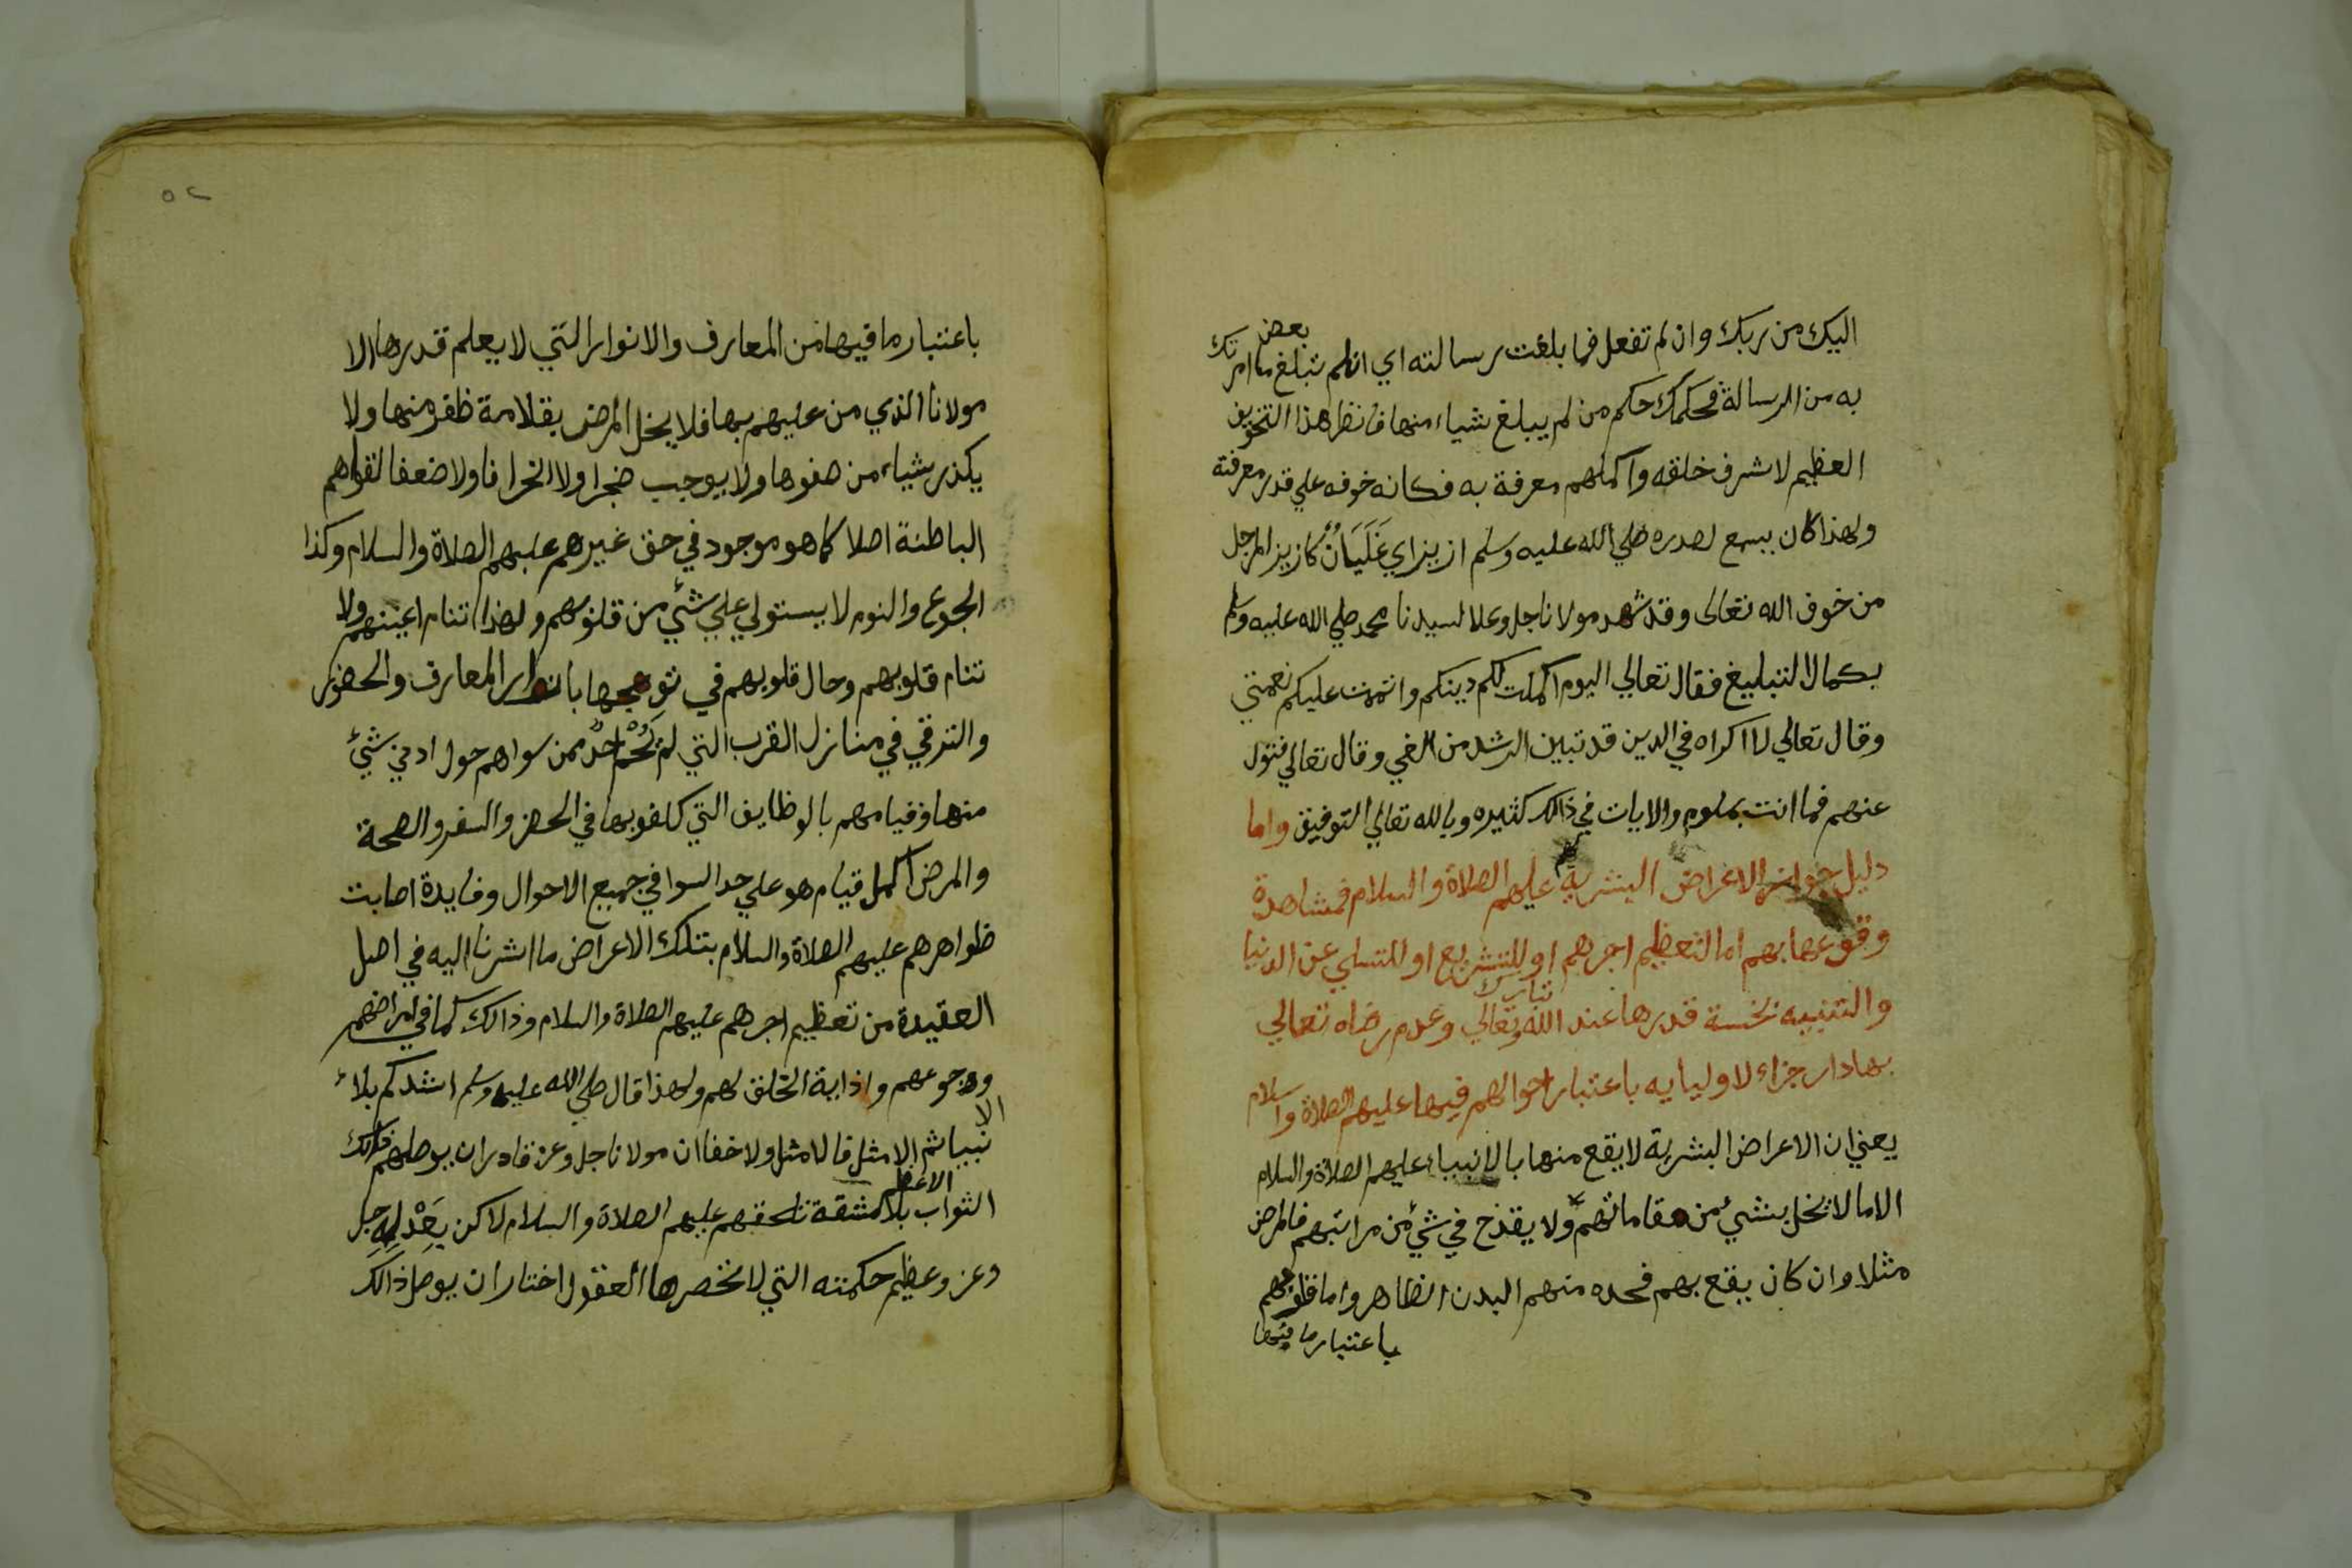 اليك من ربك وان لم تفعل فما بلغت رسالته اي ان لم تبلغ بعض ما امرتك
به من الرسالة فحكمك حكم من لم يبلغ شياء منها فانظر هذا التخويف
العظيم لاشرف خلقه واكملهم معرفة به فكانه خوفه علي قدر معرفته
ولهذا كان يسمع لصدره صلي الله عليه وسلم ازيز اي غَلَيَانٌ كازيز المرجل
من خوف الله تعالى وقد شهد مولانا جل وعلا لسيدنا محمد صلي الله عليه وسلم
بكمال التبليغ فقال تعالي اليوم اكملت لكم دينكم واتممت عليكم نعمتي
وقال تعالي لا اكراه في الدين قد تبين الرشد من الغي وقال تعالي فتول
عنهم فما انت بملوم والايات في ذالك كثيره وبالله تعالي التوفيق واما
دليل جواز الاعراض البشرية عليهم الصلاة والسلام فمشاهدة
وقوعها بهم اما لتعظيم اجرهم او للتشريع او للتسلي عن الدنيا
والتنبيه لخسة قدرها عند الله تبارك وتعالي وعدم رضاه تعالي
بها دار جزاء لاوليايه باعتبار احوالهم فيها عليهم الصلاة والسلام
يعني ان الاعراض البشرية لا يقع منها بالانبياء عليهم الصلاة والسلام
الا ما لا يخل بشيء من مقاماتهم ولا يقدح في شيء من مراتبهم فالمرض
مثلا وان كان يقع بهم فحده منهم البدن الظاهر واما قلوبهم
باعتبار ما فيها
٥٢
باعتبار ما فيها من المعارف والانوار التي لا يعلم قدرها الا
مولانا الذي من عليهم بها فلا يخل المرض بقلامة ظفر منها ولا
يكدر شياء من صفوها ولا يوجب ضجرا ولا انحرافا ولا ضعفا لقواهم
الباطنة اصلا كما هو موجود في حق غيرهم عليهم الصلاة والسلام وكذا
الجوع والنوم لا يستولي علي شيء من قلوبهم ولهذا تنام اعينهم ولا
تنام قلوبهم وحال قلوبهم في توهجها بانوار المعارف والحضور
والترقي في منازل القرب التي لم يَحُمْ احدٌ ممن سواهم حول ادني شيء
منها وقيامهم بالوظايف التي كلفو بها في الحضر والسفر والصحة
والمرض اكمل قيام هو علي حد السوا في جميع الاحوال وفايدة اصابت
ظواهرهم عليهم الصلاة والسلام بتلك الاعراض ما اشرنا اليه في اصل
العقيدة من تعظيم اجرهم عليهم الصلاة والسلام وذالك كما في امراضهم
وجوعهم واذاية الخلق لهم ولهذا قال صلي الله عليه وسلم اشدكم بلاء
الانبيا ثم الامثل فالامثل ولا خفا ان مولانا جل وعز قادر ان يوصلهم ذالك
الثواب الاعظم بلا مشقة تلحقهم عليهم الصلاة والسلام لاكن بِعَدْلِهِ جل
وعز وعظيم حكمته التي لا تحصرها العقول اختار ان يوصل ذالك